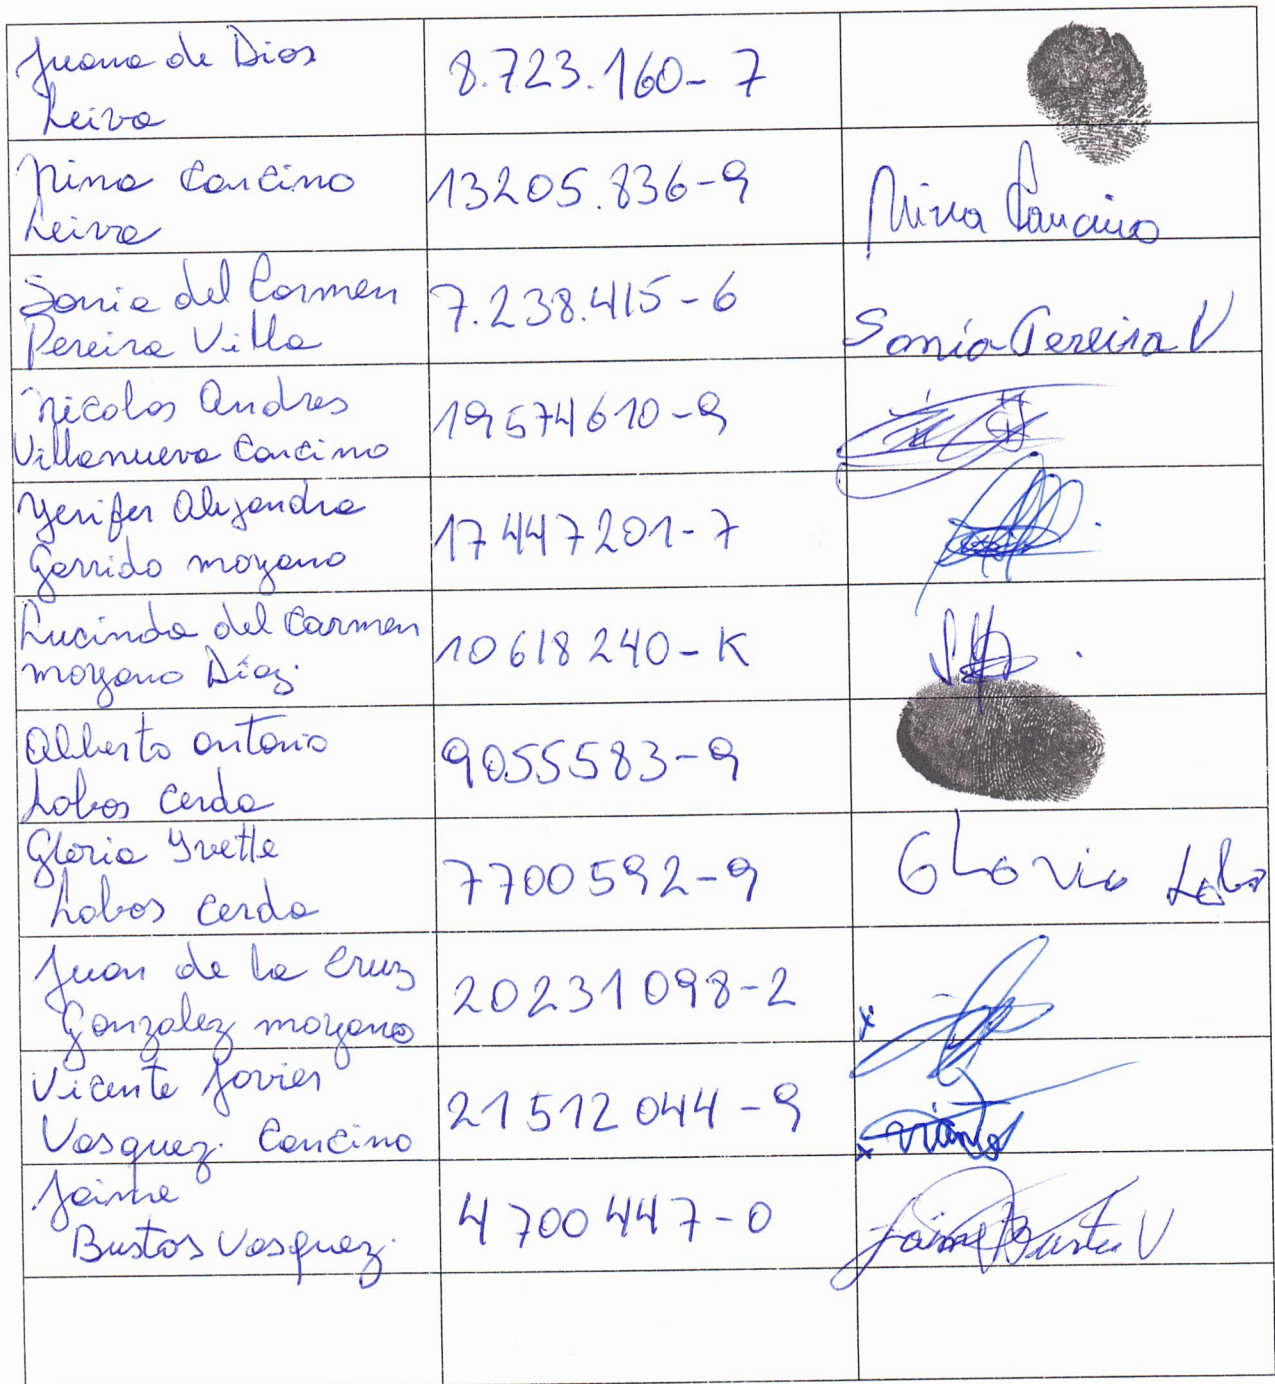 Juana de Dios
Leiva
8.723.160-7
Nina Cancino
Leiva
13205.836-9
Nina Cancino
Sonia del Carmen
Pereira Villa
7.238.415-6
Sonia Pereira V
Nicolas Andres
Villanueva Cancino
19574610-9
Yenifer Alejandra
Garrido moyano
17447201-7
Lucinda del Carmen
moyano Díaz.
10618240-K
Alberto antonio
Lobos Cerda
9055583-9
Gloria Yvette
Lobos Cerda
7700592-9
GLoria Lobos
Juan de la Cruz
Gonzalez moyano
20231098-2
x
Vicente Javier
Vasquez. Cancino
21512044-9
x
Jaime
Bustos Vasquez.
4700447-0
Jaime Bustos V